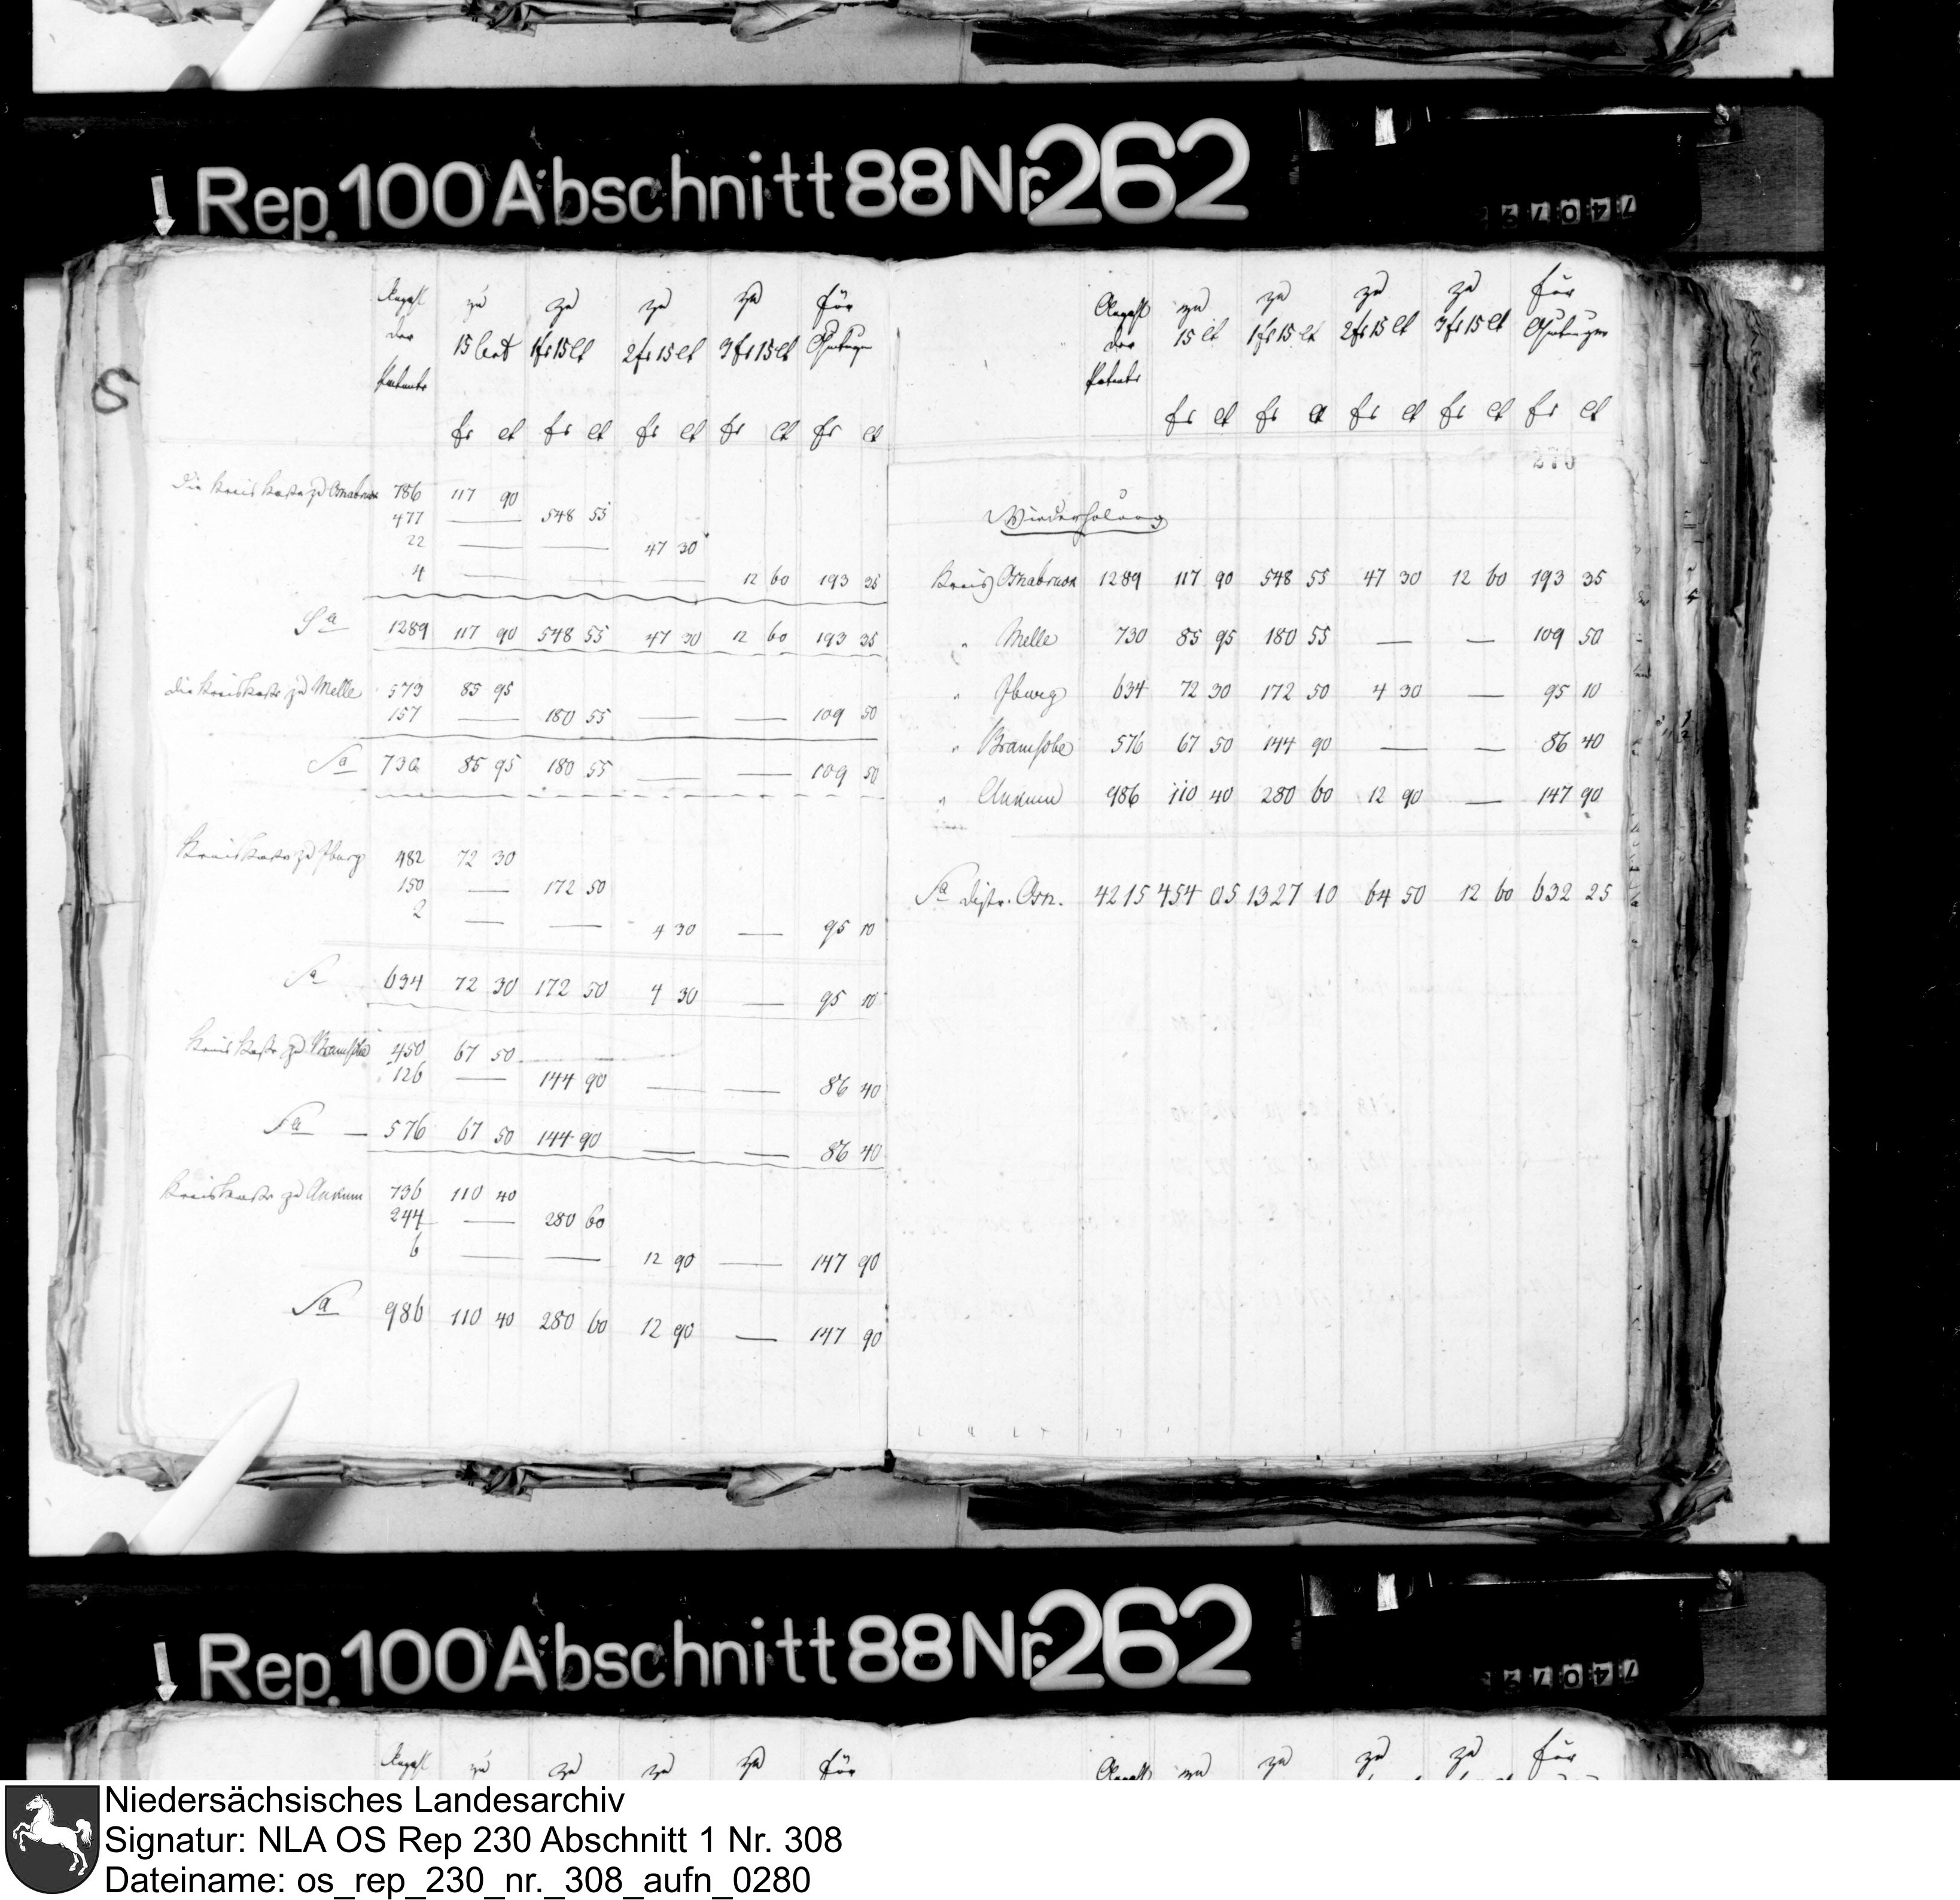 Rep. 100 Abschnitt 88 Nr. 262
Anzahl der Patente | zu 15 Cent | zu 1 fr 15 Ct | zu 2 fr 15 Ct | zu 3 fr 15 Ct | für
fr ct fr ct fr ct fr ct fr ct
die Kreis Kasse zu Osnabruck 786 117 90
477 — 548 55
22 — — 47 30
4 — — — 12 60 193 35
Sa 1289 117 90 548 55 47 30 12 60 193 35
die Kreis Kasse zu Melle 573 85 95
157 — 180 55 — — 109 50
Sa 730 85 95 180 55 — — 109 50
Kreis Kasse zu Iburg 482 72 30
150 — 172 50
2 — — 4 30 — 95 10
Sa 634 72 30 172 50 4 30 — 95 10
Kreis Kasse zu Bramsche 450 67 50
126 — 144 90 — — 86 40
Sa — 576 67 50 144 90 — — 86 40
Kreis Kasse zu Ankum 736 110 40
244 — 280 60
6 — — 12 90 — 147 90
Sa 986 110 40 280 60 12 90 — 147 90
Anzahl der Patente | zu 15 Ct | zu 1 fr 15 Ct | zu 2 fr 15 Ct | zu 3 fr 15 Ct | für
fr ct fr ct fr ct fr ct fr ct
270
Wiederholung
Kreis Osnabruck 1289 117 90 548 55 47 30 12 60 193 35
" Melle 730 85 95 180 55 — — 109 50
" Iburg 634 72 30 172 50 4 30 — 95 10
" Bramsche 576 67 50 144 90 — — 86 40
" Ankum 986 110 40 280 60 12 90 — 147 90
Sa Distr. Osn. 4215 454 05 1327 10 64 50 12 60 632 25
Rep. 100 Abschnitt 88 Nr. 262
Anzahl zu zu zu zu für
Anzahl zu zu zu zu für
Niedersächsisches Landesarchiv
Signatur: NLA OS Rep 230 Abschnitt 1 Nr. 308
Dateiname: os_rep_230_nr._308_aufn_0280